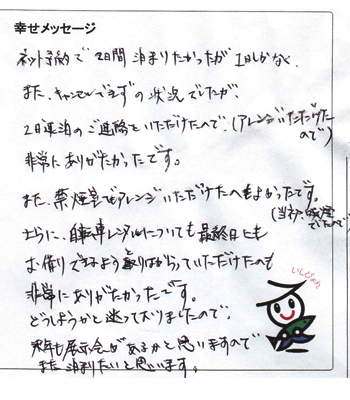 幸せメッセージ
ネット予約で2日間泊まりたかったが1日しかなく、
また、キャンセルできずの状況でしたが、
2日連泊のご連絡をいただけたので、(アレンジいただけたので)
非常にありがたかったです。
また、禁煙室でアレンジいただけたのもよかったです。
(当初、喫煙でしたので)
さらに、自転車レンタルについても最終日にも
お借りできるよう とりはからっていただけたのも
非常にありがたかったです。
どうしようかと迷っておりましたので。
来年も展示会があるかと思いますので
また泊まりたいと思います。